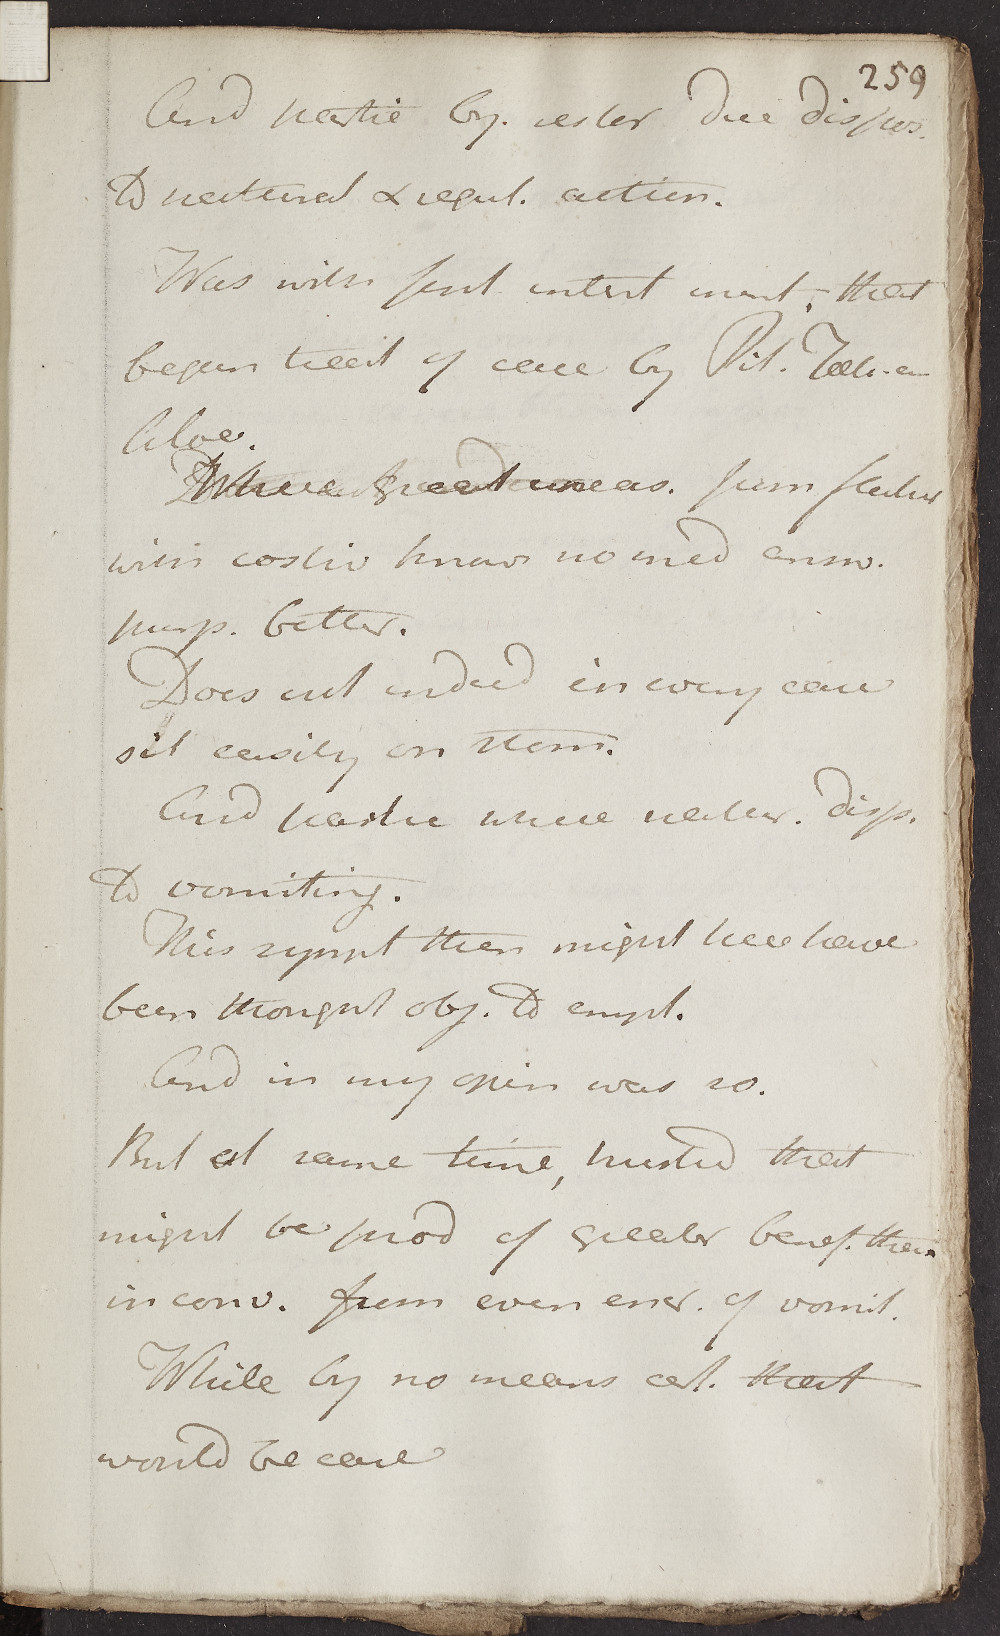 259
And partic by. restor due dispos.
to natural & regul. action.
Was with first intent ment, that
began treat of case by Pil. Tob. ex
Aloe.
Where great uneas. from flatus
with costiv know no med answ.
purp. better.
Does not indeed in every case
sit easily on stom.
And partic where natur. disp.
to vomiting.
This sympt then might here have
been thought obj. to empl.
And in my opin was so.
But at same time, trusted that
might be prod of greater benef. than
inconv. from even encr. of vomit.
While by no means cert. that
would be case